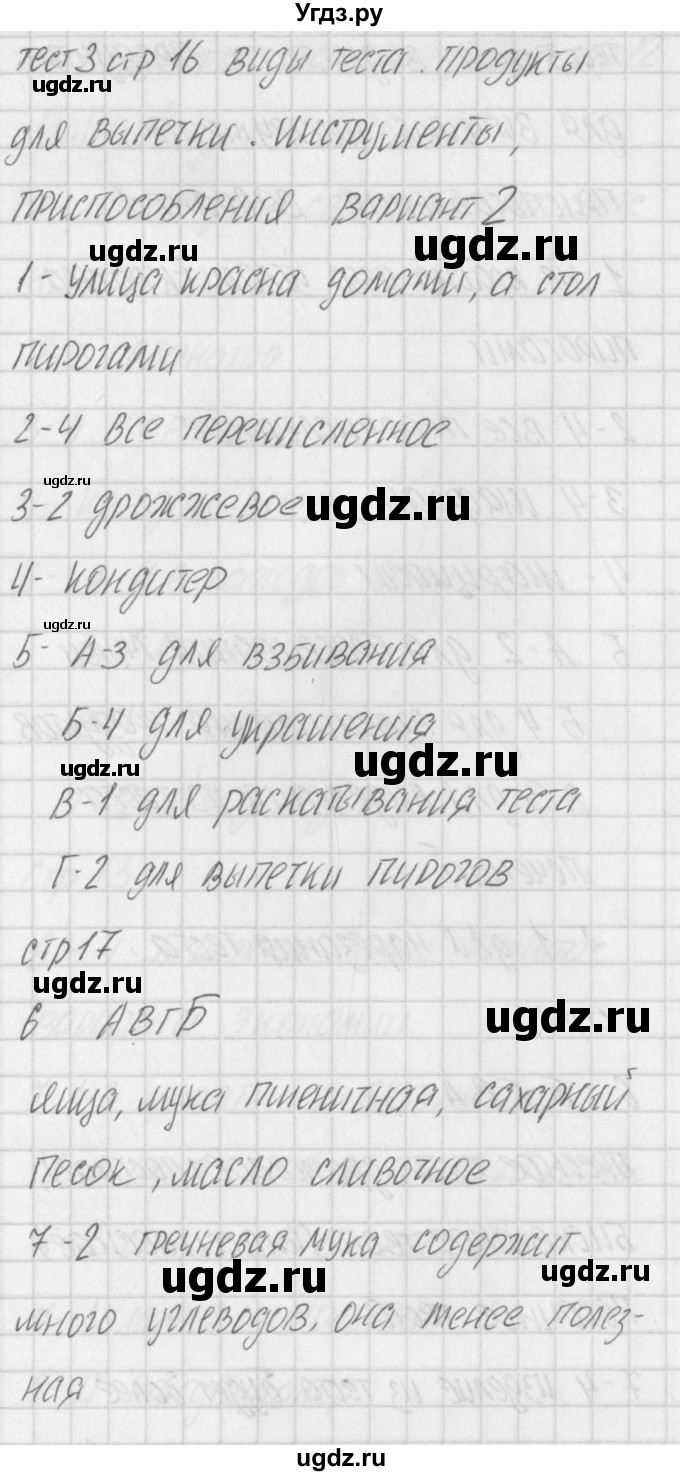 Угдз.ру
тест 3 стр 16 виды теста. продукты
ugdz.ru
для выпечки. инструменты,
приспособления вариант 2
ugdz.ru ugdz.ru
1 - улица красна домами, а стол
пирогами
2-4 все перечисленное
ugdz.ru
3-2 дрожжевое ugdz.ru
4- кондитер
ugdz.ru
5- А-3 для взбивания
Б-4 для украшения
ugdz.ru ugdz.ru
В-1 для раскатывания теста
Г-2 для выпечки пирогов
стр 17
ugdz.ru
6 АВГБ ugdz.ru
яйца, мука пшеничная, сахарный
песок, масло сливочное
7-2 гречневая мука содержит
ugdz.ru ugdz.ru
много углеводов, она менее полез-
ная
ugdz.ru